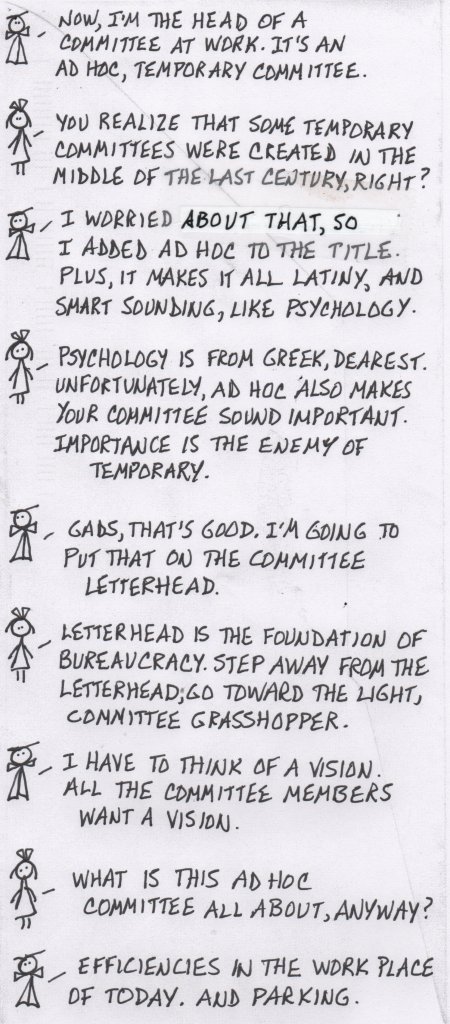 NOW, I'M THE HEAD OF A
COMMITTEE AT WORK. IT'S AN
AD HOC, TEMPORARY COMMITTEE.
YOU REALIZE THAT SOME TEMPORARY
COMMITTEES WERE CREATED IN THE
MIDDLE OF THE LAST CENTURY, RIGHT?
I WORRIED ABOUT THAT, SO
I ADDED AD HOC TO THE TITLE.
PLUS, IT MAKES IT ALL LATINY, AND
SMART SOUNDING, LIKE PSYCHOLOGY.
PSYCHOLOGY IS FROM GREEK, DEAREST.
UNFORTUNATELY, AD HOC ALSO MAKES
YOUR COMMITTEE SOUND IMPORTANT.
IMPORTANCE IS THE ENEMY OF
TEMPORARY.
GADS, THAT'S GOOD. I'M GOING TO
PUT THAT ON THE COMMITTEE
LETTERHEAD.
LETTERHEAD IS THE FOUNDATION OF
BUREAUCRACY. STEP AWAY FROM THE
LETTERHEAD; GO TOWARD THE LIGHT,
COMMITTEE GRASSHOPPER.
I HAVE TO THINK OF A VISION.
ALL THE COMMITTEE MEMBERS
WANT A VISION.
WHAT IS THIS AD HOC
COMMITTEE ALL ABOUT, ANYWAY?
EFFICIENCIES IN THE WORK PLACE
OF TODAY. AND PARKING.